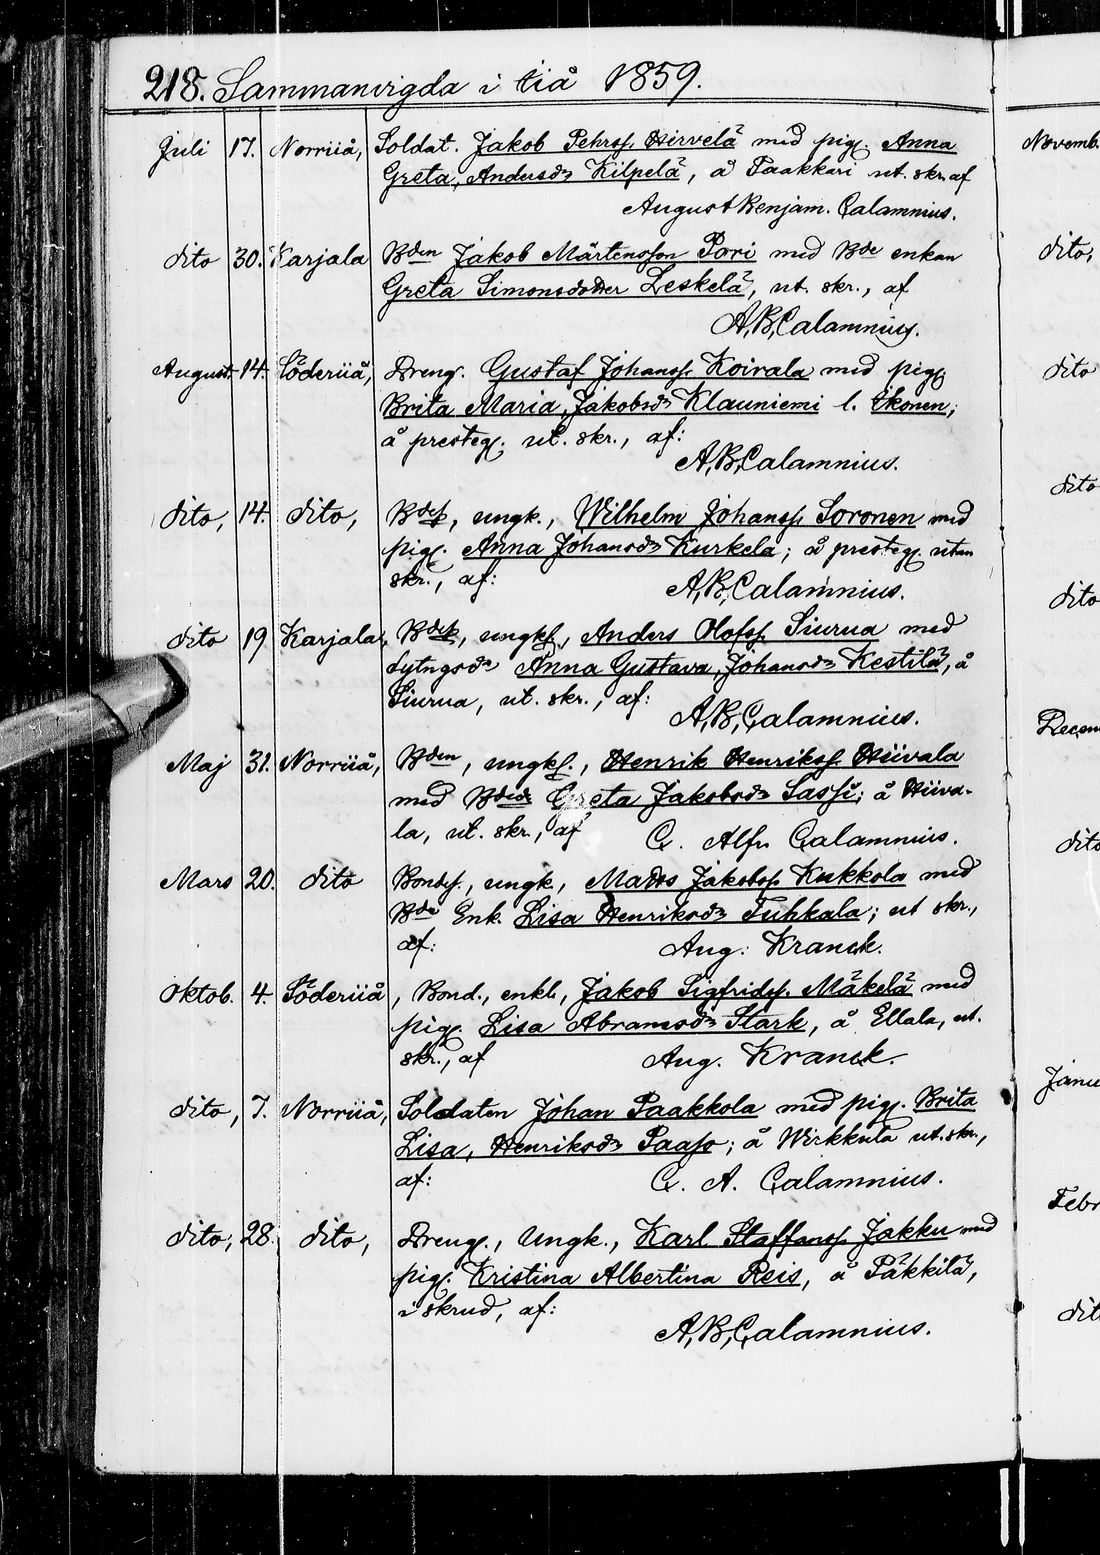 218. Sammanvigda i Iiå 1859.
Juli 17. Norriiå, Soldat. Jakob Pehrss. Hirvelä med pig. Anna
Greta, Andersdr Kilpelä, å Paakkari ut. skr. af
August Benjam. Calamnius.
dito 30. Karjala Bden Jakob Mårtensson Pori med Bde enkan
Greta Simonsdotter Leskelä, ut. skr., af
A,B,Calamnius.
August, 14. Söderiiå, Dreng. Gustaf Johanss. Koirala med pig.
Brita Maria, Jakobsdr Klauniemi l. Ikonen;
å presteg. ut. skr., af:
A,B,Calamnius.
dito, 14. dito, Bdes., ungk., Wilhelm Johanss. Soronen med
pig. Anna Johansdr Kurkela; å presteg. utan
skr., af: A,B,Calamnius.
dito 19 Karjala, Bdes., ungk., Anders Olofss. Siurua med
sytngsdr Anna Gustava, Johansdr Kestilä, å
Siurua, ut. skr., af: A,B,Calamnius.
Maj 31. Norriiå, Bden, ungk., Henrik Henrikss. Hiivala
med Bdedr Greta Jakobsdr Sassi; å Hiiva-
la, ut. skr., af C. Alfr. Calamnius.
Mars 20. dito Bondes., ungk., Matts Jakobss. Kukkola med
Bde Enk. Lisa Henriksdr Tuhkala; ut skr.,
af: Aug: Kranck.
Oktob. 4. Söderiiå, Bond., enkl., Jakob Sigfrids. Mäkelä med
pig. Lisa Abramsdr Stark, å Ellala, ut.
skr., af Aug. Kranck.
dito, 7. Norriiå, Soldaten Johan Paakkola med pig. Brita
Lisa, Henriksdr Paaso; å Wirkkula ut. skr.,
af: C. A. Calamnius.
dito, 28. dito, Dreng., Ungk., Karl Staffanss. Jakku med
pig. Kristina Albertina Reis, å Päkkilä,
i skrud, af:
A,B,Calamnius.
Novemb.
dito,
dito
dito
dito
dito